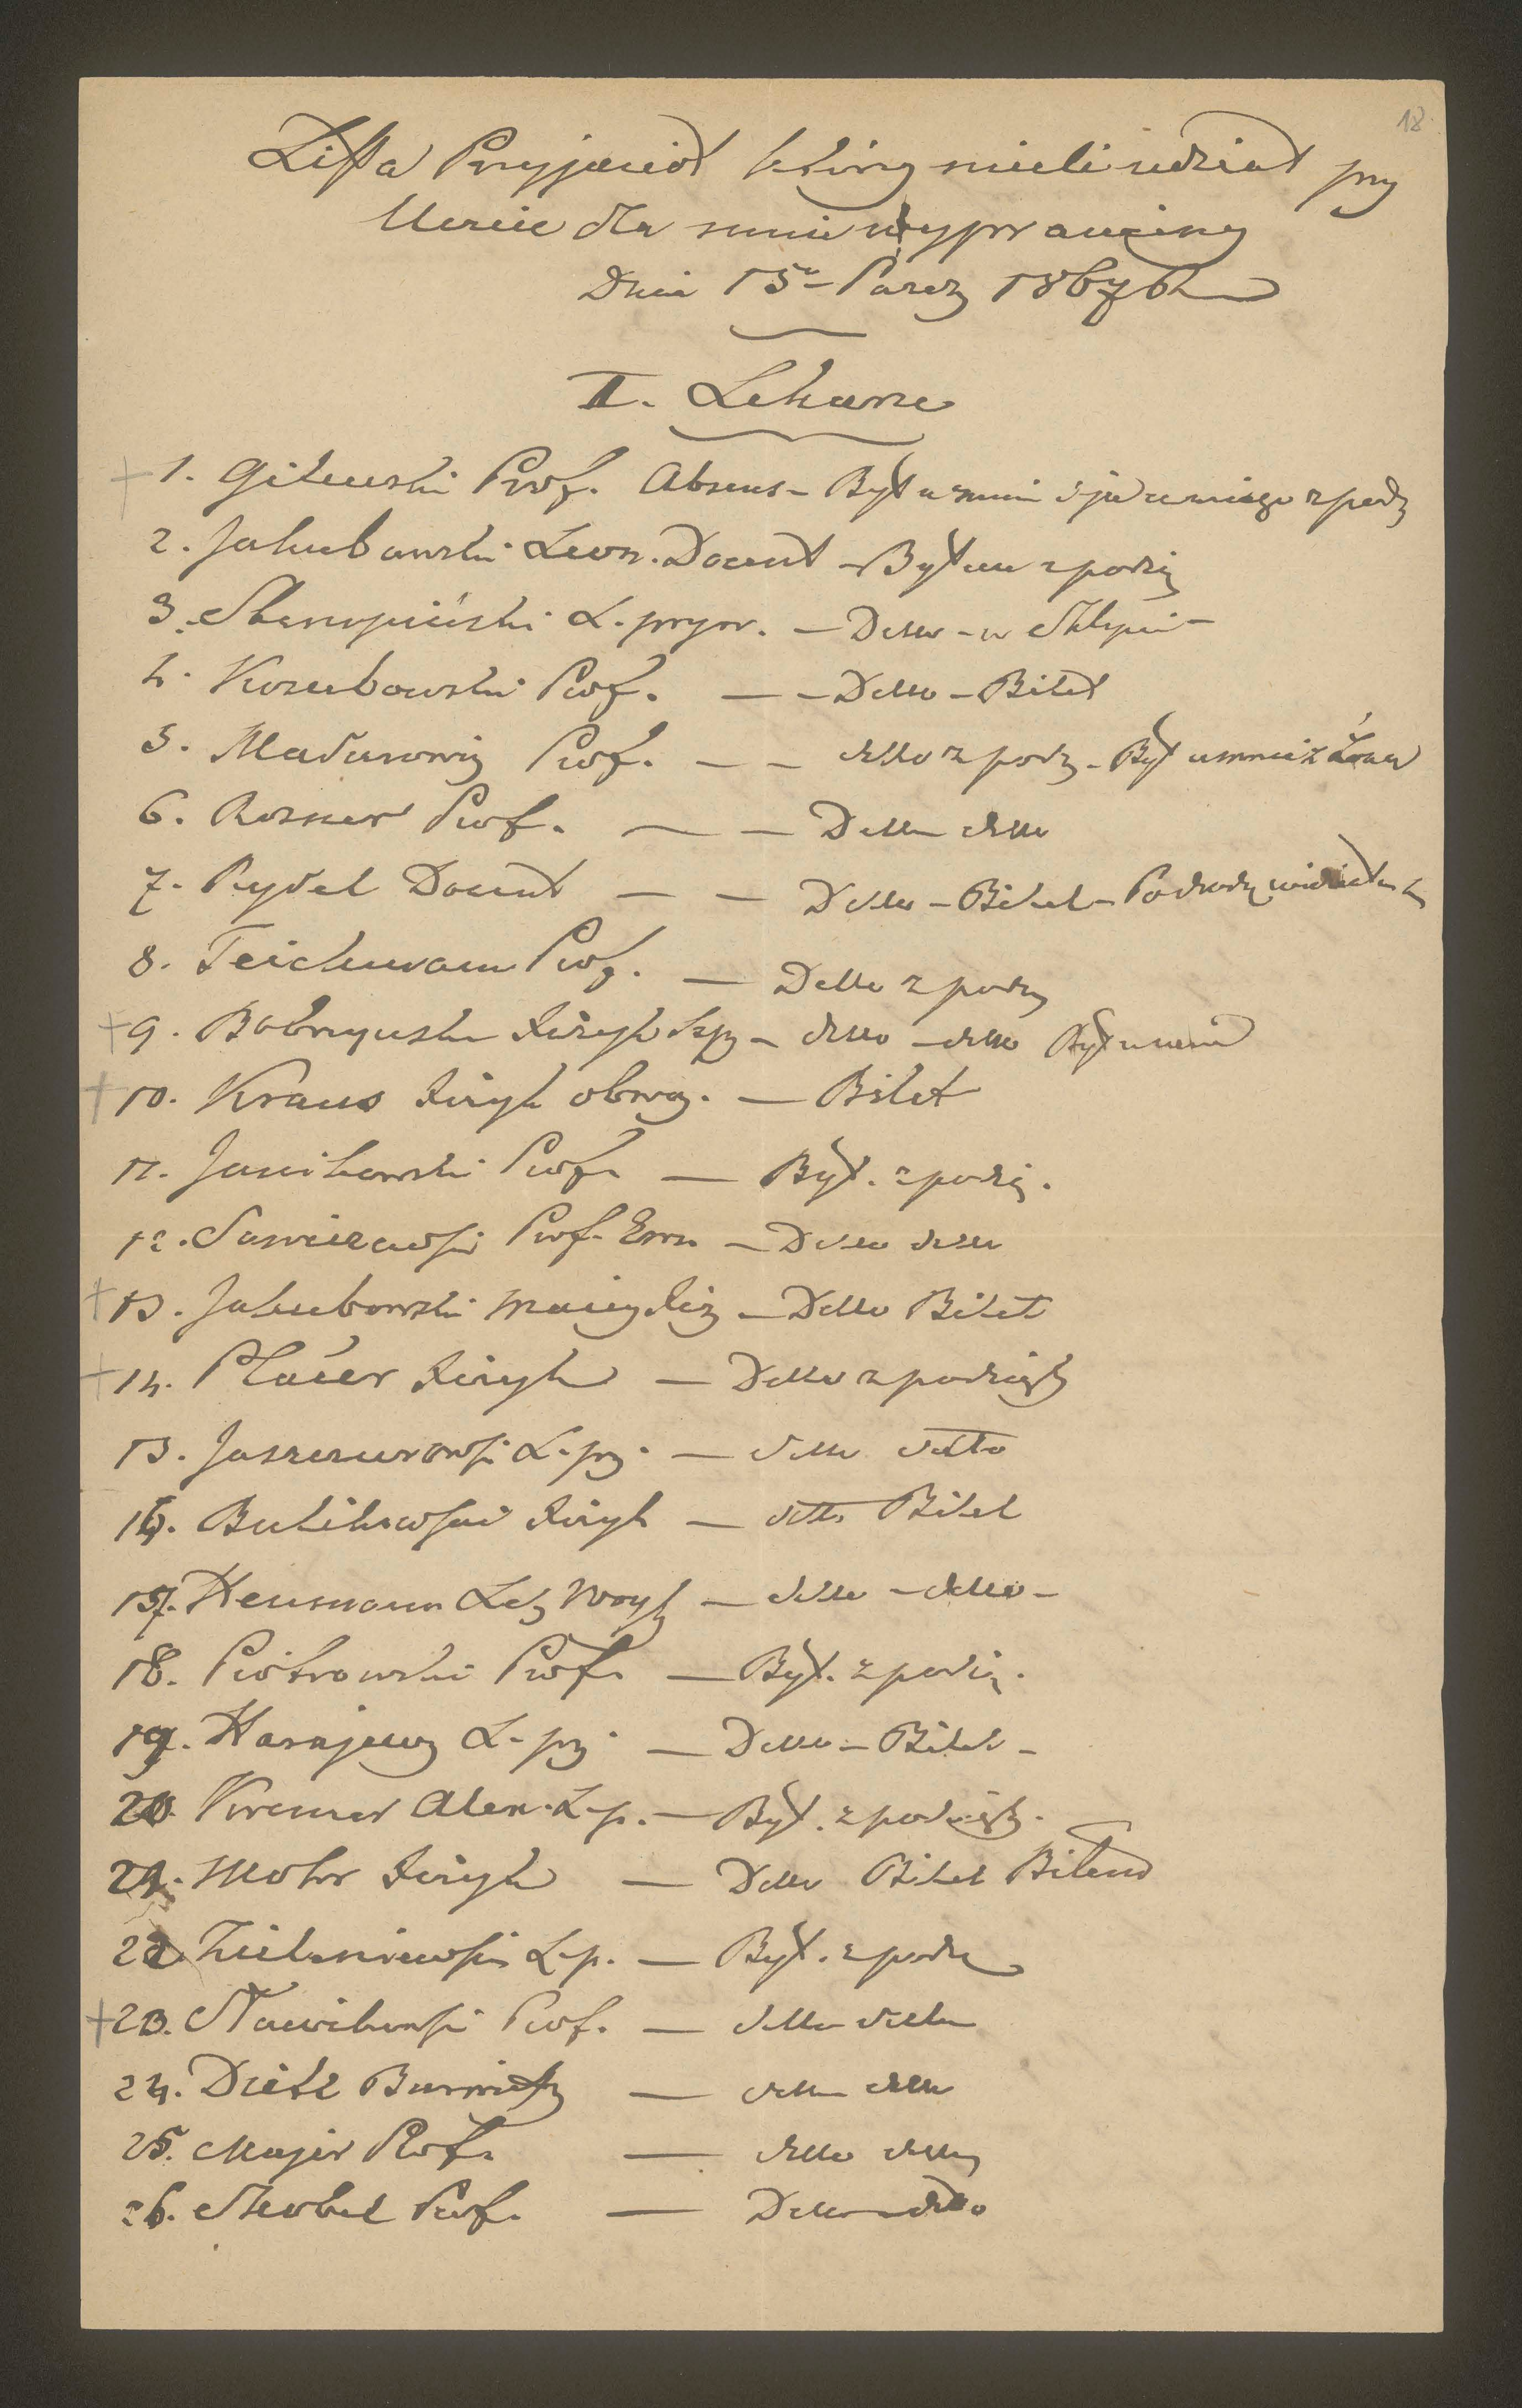 18
Lista Przyjaciół którzy mieli udział przy
Uczcie dla mnie wyprawioney
Dnia 15º Paźdz 1867 b
II. Lekarze
1. Gilewski Prof. Absens – Był u mnie i ja u niego z podz
2. Jakubowski Leon. Docent – Byłem z podzię
3. Skarzyński L. pryw. – Detto – w Sklepie –
4. Kozubowski Prof. – – Detto – Bilet
5. Madurowicz Prof. – – detto z podz – Był u mnie z Żoną
6. Rosner Prof. – – Detto detto
7. Rydel Docent – – Detto – Bilet –
8. Teichmann Prof. – Detto z podz
9. Bobrzyński Fizyk – detto – detto Był u mnie
10. Kraus Fizyk obwo. – Bilet
11. Janikowski Prof. – Był. z podzię.
12. Sawiczewski Prof. Em. – Detto detto
13. Jakubowski Maciej – Detto Bilet
14. Placer Fizyk – Detto z podzięk
15. Jaszczurowski L. pr. – detto detto
16. Bulikowski Fizyk – detto Bilet
17. Heumann Lek Woysk – detto – detto –
18. Piotrowski Prof. – Był. z podzię.
19. Harajewicz L. pr. – Detto – Bilet –
20. Kremer Alex. L. p. – Był. z podzięk.
21. Mohr Fizyk – Detto Bilet
22. Zieleniewski L. p. – Był. z podz
23. Nawikowski Prof. – detto detto
24. Dietl Burmistrz – detto detto
25. Majer Prof. – detto detto
26. Skobel Prof. – Detto – detto